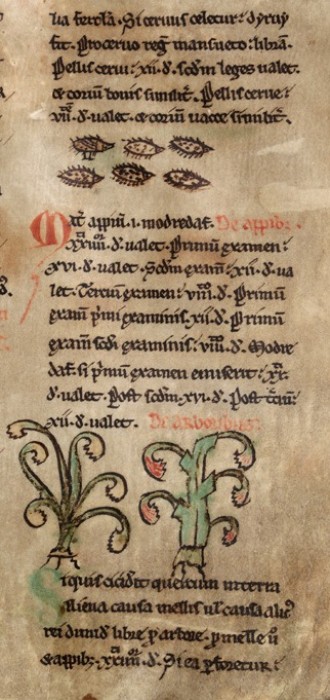 lia ferola. Si ceruus celetur: dyruy
fit. Pro ceruo reg mansueto: libram.
Pellis cerui: xii. d. scdm leges ualet.
et corium bouis similit. Pellis cerue:
viii. d. ualet. et corium uacce similit.
Mat appium .i. modredaf. De appibus.
xxiiii. d. ualet. Primum examen:
xvi. d. ualet. Scdm exam: xii. d. ua
let. Tercium examen: viii. d. Primum
exam pmi examinis. xii. d. Primum
exam scdi examinis: viii. d. Modre
daf. si pmum examen emiserit: xx.
d. ualet. Post scdm. xvi. d. Post tcium:
xii. d. ualet. De arboribus.
Siquis ciciderit quercum in terra
aliena causa mellis ul causa alic
rei dimid libre p arbore. p melle u
et appibus. xxiiii. d. Si ea pforetur: